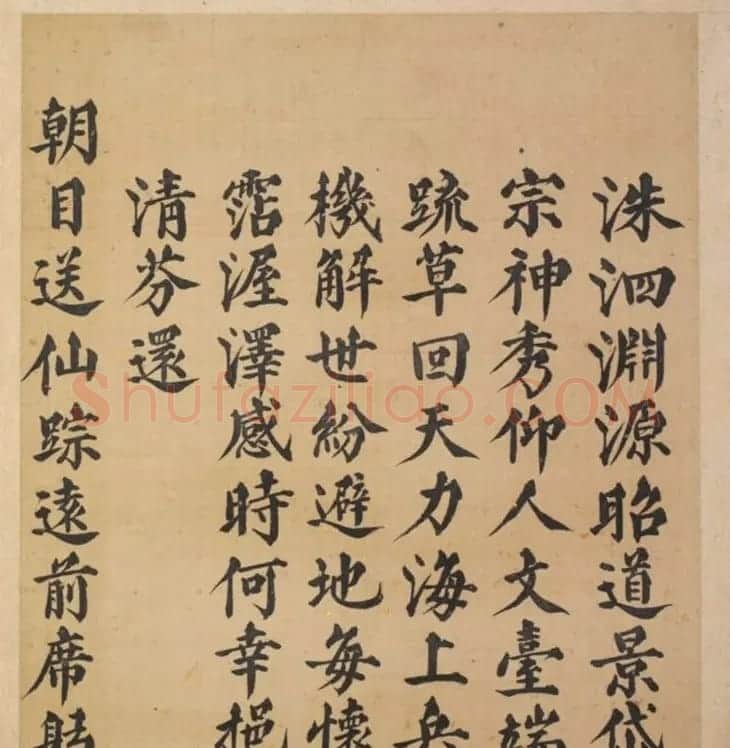 洙泗淵源昭道景岱
宗神秀仰人文臺端
䟽草回天力海上兵
機解世紛避地每懷
霑渥澤感時何幸挹
清芬還
朝目送仙踪遠前席
Shufaziliao.COM